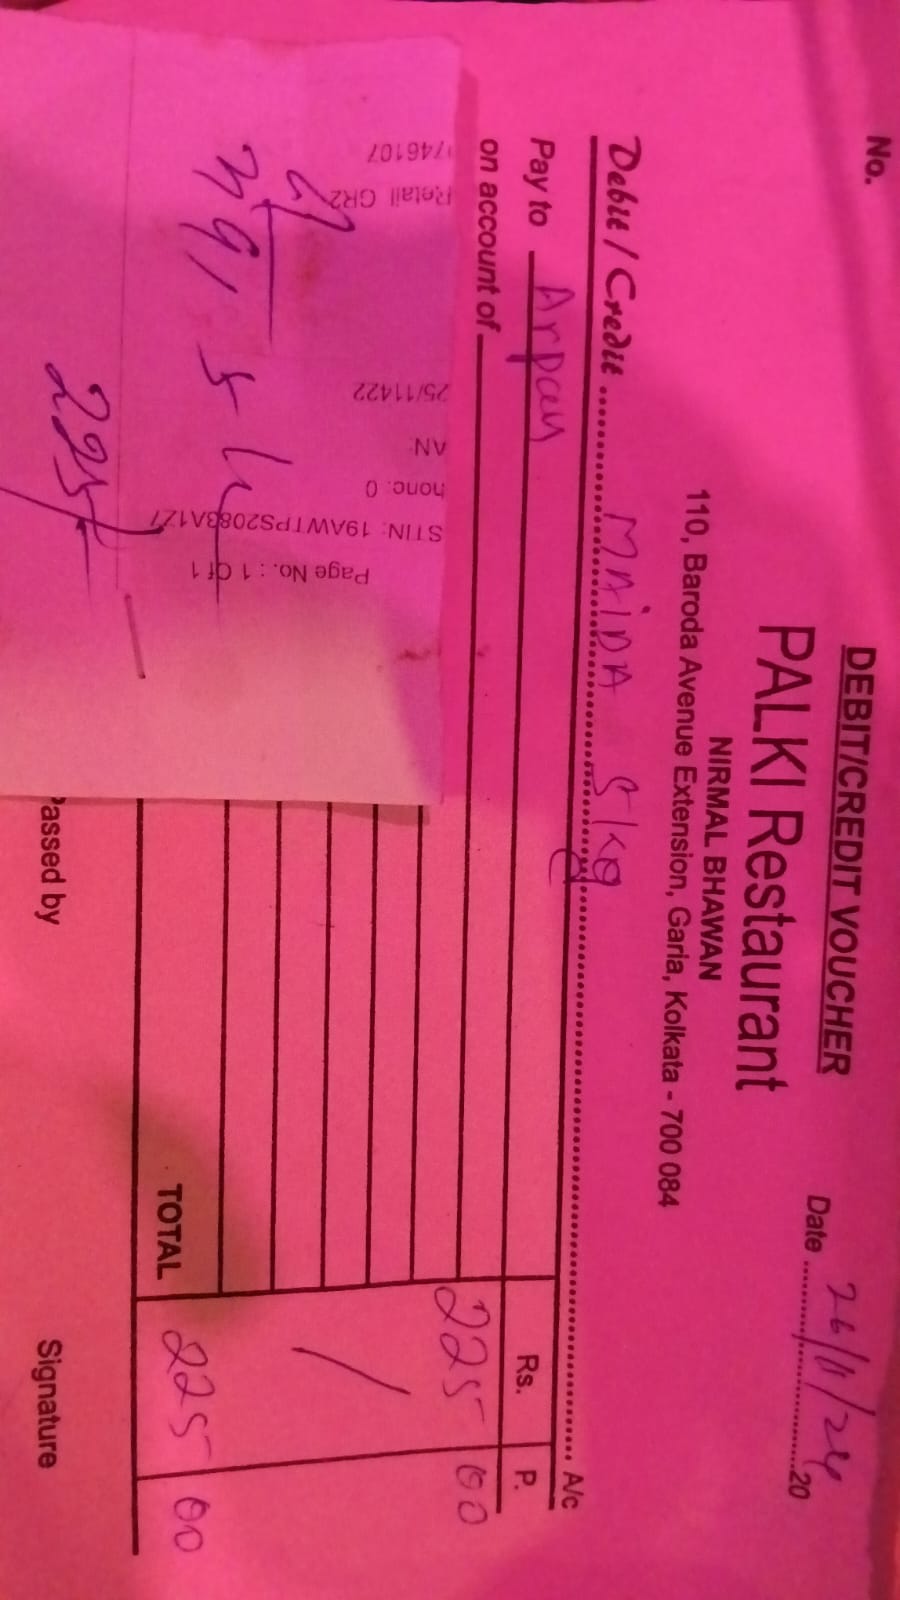 No.
DEBIT/CREDIT VOUCHER
PALKI Restaurant
NIRMAL BHAWAN
110, Baroda Avenue Extension, Garia, Kolkata - 700 084
Date 26/11/24 20
Debit / Credit MAIDA 5kg A/c
Pay to Arpan
Rs. P.
on account of
225 00
TOTAL 225 00
Passed by
Signature
Page No. : 1 Of 1
STIN: 19AWTPS2083A1Z7
hone: 0
AN:
25/11422
Retail GR2
746107
225